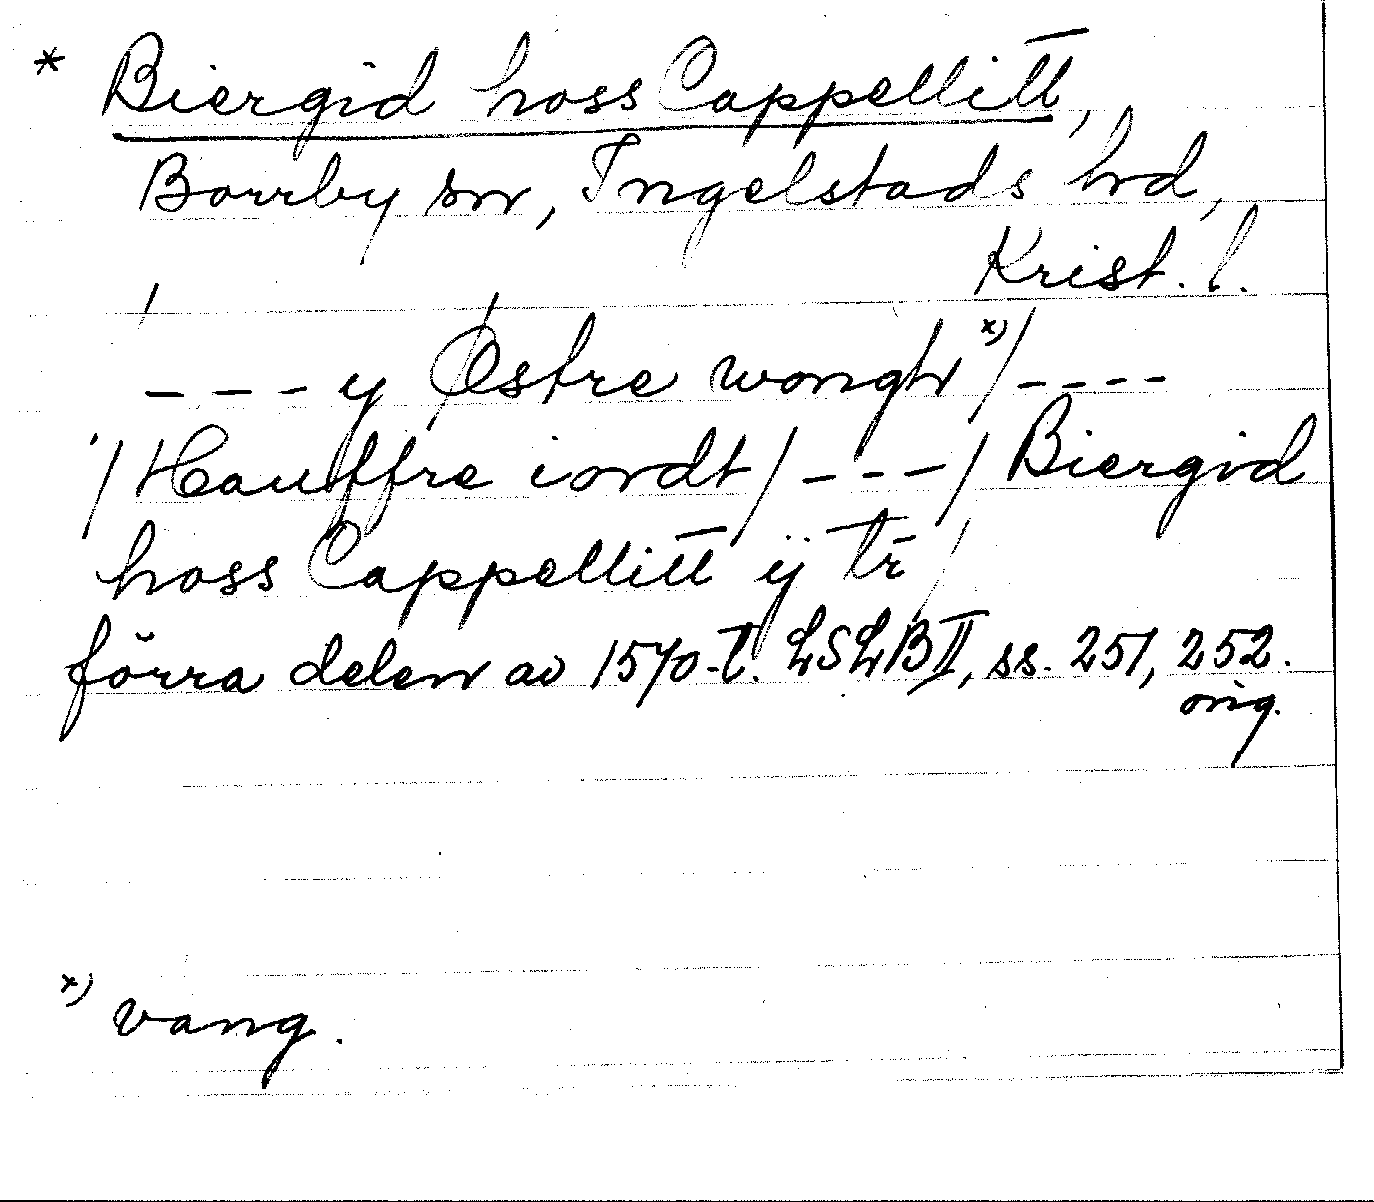 * Biergid hoss Cappellitt,
Borrby sn, Ingelstads hd,
Krist. l.
/
- - - y / Østre wongh x) / - - - -
/ Hauffre iordt / - - - / Biergid
hoss Cappellitt ÿ tr̄ /
förra delen av 1570-t. LSLB II, ss. 251, 252.
orig.
x) vang.